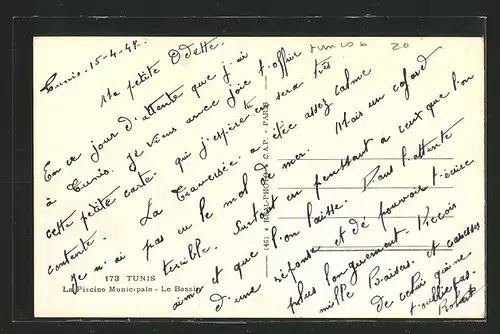 Tunis - 15-4-47.
Ma petite Odette.
En ce jour d'attente que j'ai
à Tunis. Je viens avec joie t'offrir
cette petite carte. qui j'espère te sera très
contente. La traversée a étée assez calme
je n'ai pas eu le mal de mer. Mais un cafard
terrible. Surtout en penssant a ceux que l'on
aime et que l'on laisse. Dans l'attente
d'une réponse et de pouvoir t'écrire
plus longuement. Reçois
mille Baisers et caresses
de celui qui ne
t'oublie pas.
Robert
TUNIS 20
(46) « REAL-PHOTO » C.A.P. - PARIS
173 TUNIS
La Piscine Municipale - Le Bassin